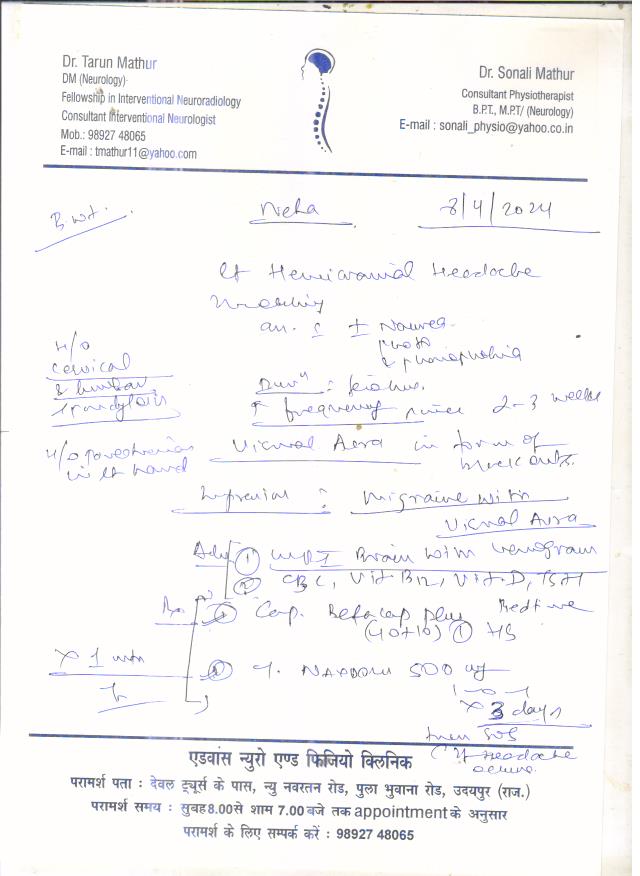 Dr. Tarun Mathur
DM (Neurology)
Fellowship in Interventional Neuroradiology
Consultant Interventional Neurologist
Mob.: 98927 48065
E-mail : tmathur11@yahoo.com
Dr. Sonali Mathur
Consultant Physiotherapist
B.P.T., M.P.T/ (Neurology)
E-mail : sonali_physio@yahoo.co.in
B.Wt.
Neha
8/4/2024
Lt Hemicranial Headache
± Nausea
photo
& phonophobia
H/o
cervical
& lumbar
spondylosis
Durn :
↑ frequency since 2-3 weeks
H/o paresthesias
in Lt hand
Visual Aura in form of
blackouts.
Impression : Migraine with
Visual Aura
Adv ① MRI Brain with venogram
② CBC, Vit B12, Vit-D, TSH
Rx ① Cap. Betacap plus Bedtime
(40+10) ① HS
x 1 mth
② T. Naxdom 500 mg
1-0-1
x 3 days
then SOS
(if Headache
एडवांस न्युरो एण्ड फिजियो क्लिनिक
परामर्श पता : देवल ट्यूर्स के पास, न्यु नवरतन रोड, पुला भुवाना रोड, उदयपुर (राज.)
परामर्श समय : सुबह 8.00 से शाम 7.00 बजे तक appointment के अनुसार
परामर्श के लिए सम्पर्क करें : 98927 48065